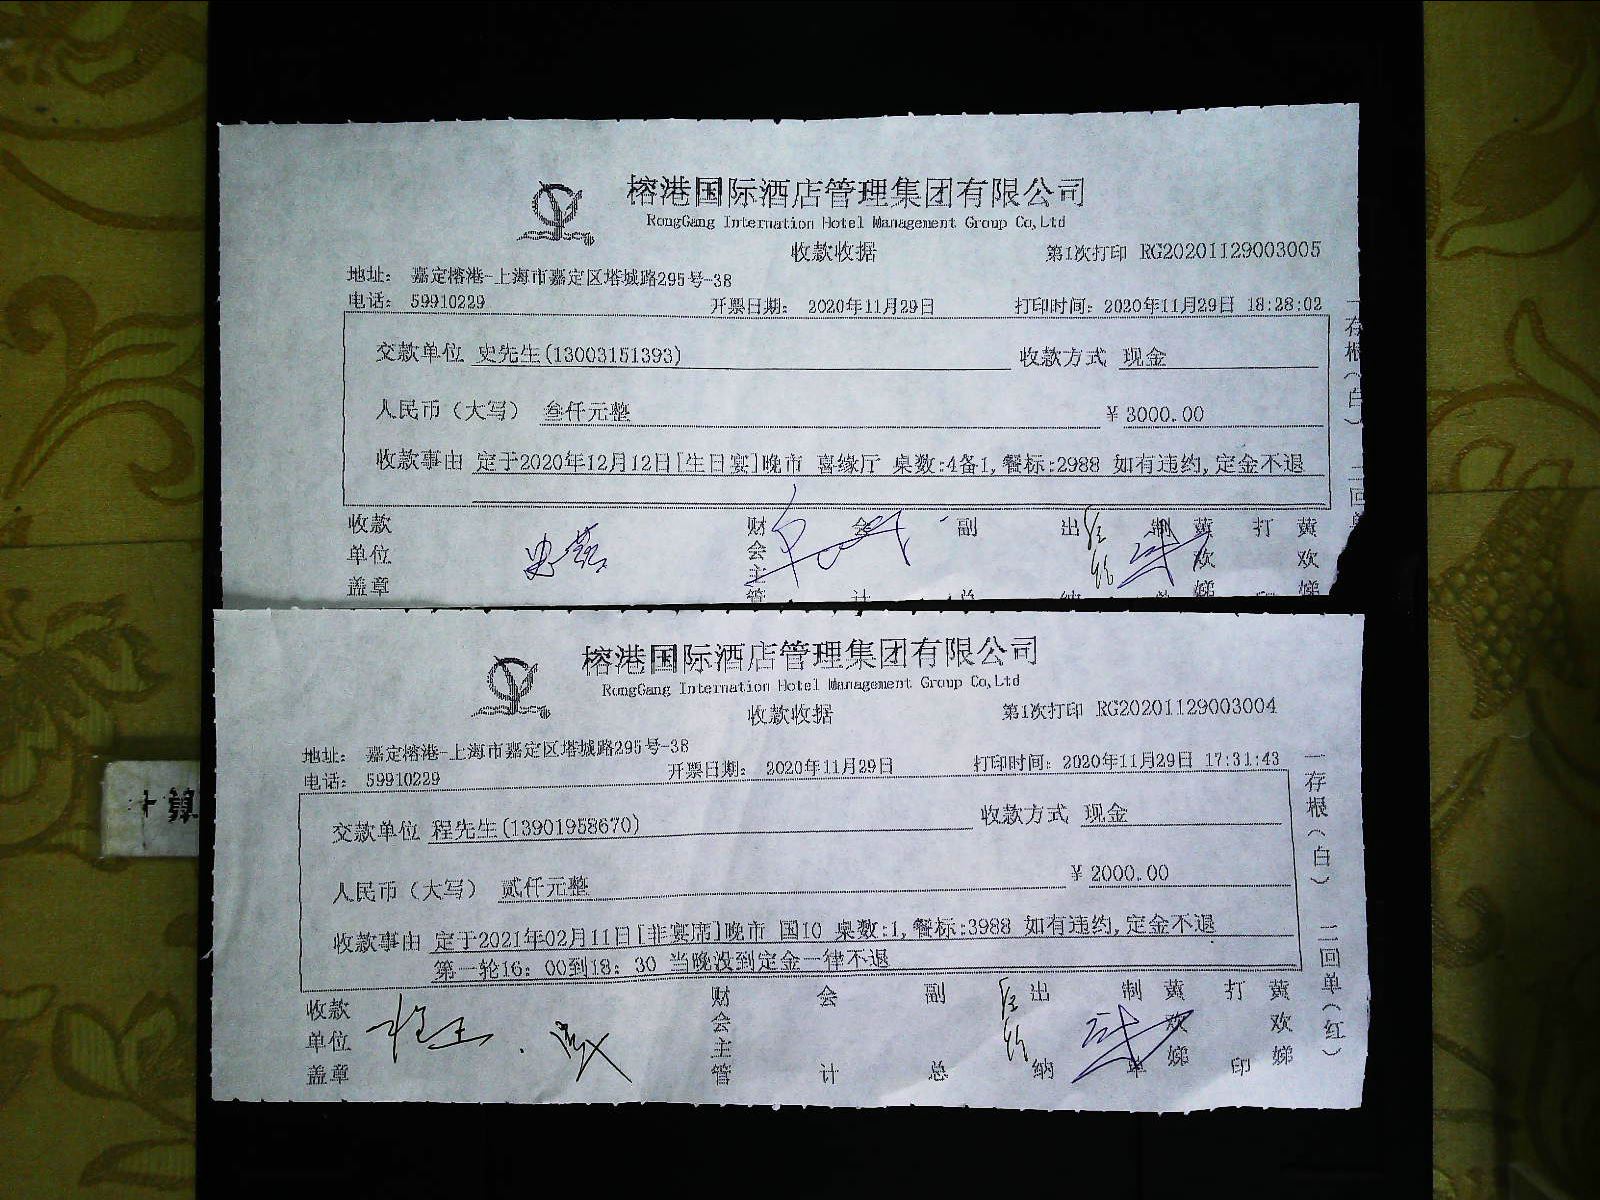 榕港国际酒店管理集团有限公司
RongGang Internation Hotel Management Group Co,Ltd
收款收据 第1次打印 RG20201129003005
地址： 嘉定榕港-上海市嘉定区塔城路295号-38
电话： 59910229 开票日期： 2020年11月29日 打印时间：2020年11月29日 18:28:02
交款单位 史先生(13003151393) 收款方式 现金
人民币（大写） 叁仟元整 ￥3000.00
收款事由 定于2020年12月12日[生日宴]晚市 喜缘厅 桌数:4备1,餐标:2988 如有违约,定金不退
一存根（白） 二回单
收款单位盖章 财会主管 会计 副总 出纳 制单 黄欢娣 打印 黄欢娣
榕港国际酒店管理集团有限公司
RongGang Internation Hotel Management Group Co,Ltd
收款收据 第1次打印 RG20201129003004
地址： 嘉定榕港-上海市嘉定区塔城路295号-38
电话： 59910229 开票日期： 2020年11月29日 打印时间：2020年11月29日 17:31:43
交款单位 程先生(13901958670) 收款方式 现金
人民币（大写） 贰仟元整 ￥2000.00
收款事由 定于2021年02月11日[非宴席]晚市 国10 桌数:1,餐标:3988 如有违约,定金不退
第一轮16：00到18：30 当晚没到定金一律不退
一存根（白） 二回单（红）
收款单位盖章 财会主管 会计 副总 出纳 制单 黄欢娣 打印 黄欢娣